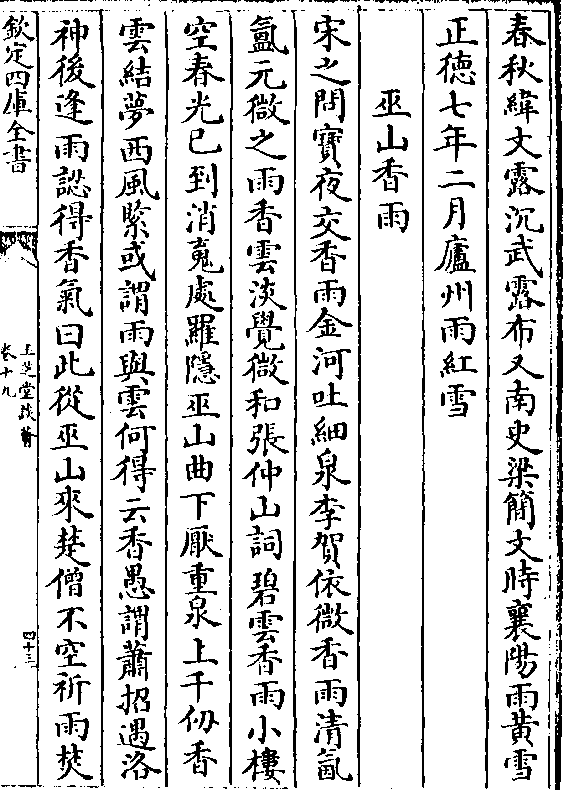 春秋緯文露沉武露布又南史梁簡文時襄陽雨黃雪
正徳七年二月廬州雨紅雪
巫山香雨
宋之問寳夜交香雨金河吐細泉李賀依微香雨清氤
氳元微之雨香雲淡覺微和張仲山詞碧雲香雨小樓
空春光已到消䰟處羅隱巫山曲下厭重泉上千仞香
雲結夢西風緊或謂雨與雲何得云香愚謂蕭招遇洛
神後逢雨認得香氣曰此從巫山來楚僧不空祈雨焚
欽定四庫全書
玉芝堂談薈
卷十九
四十三